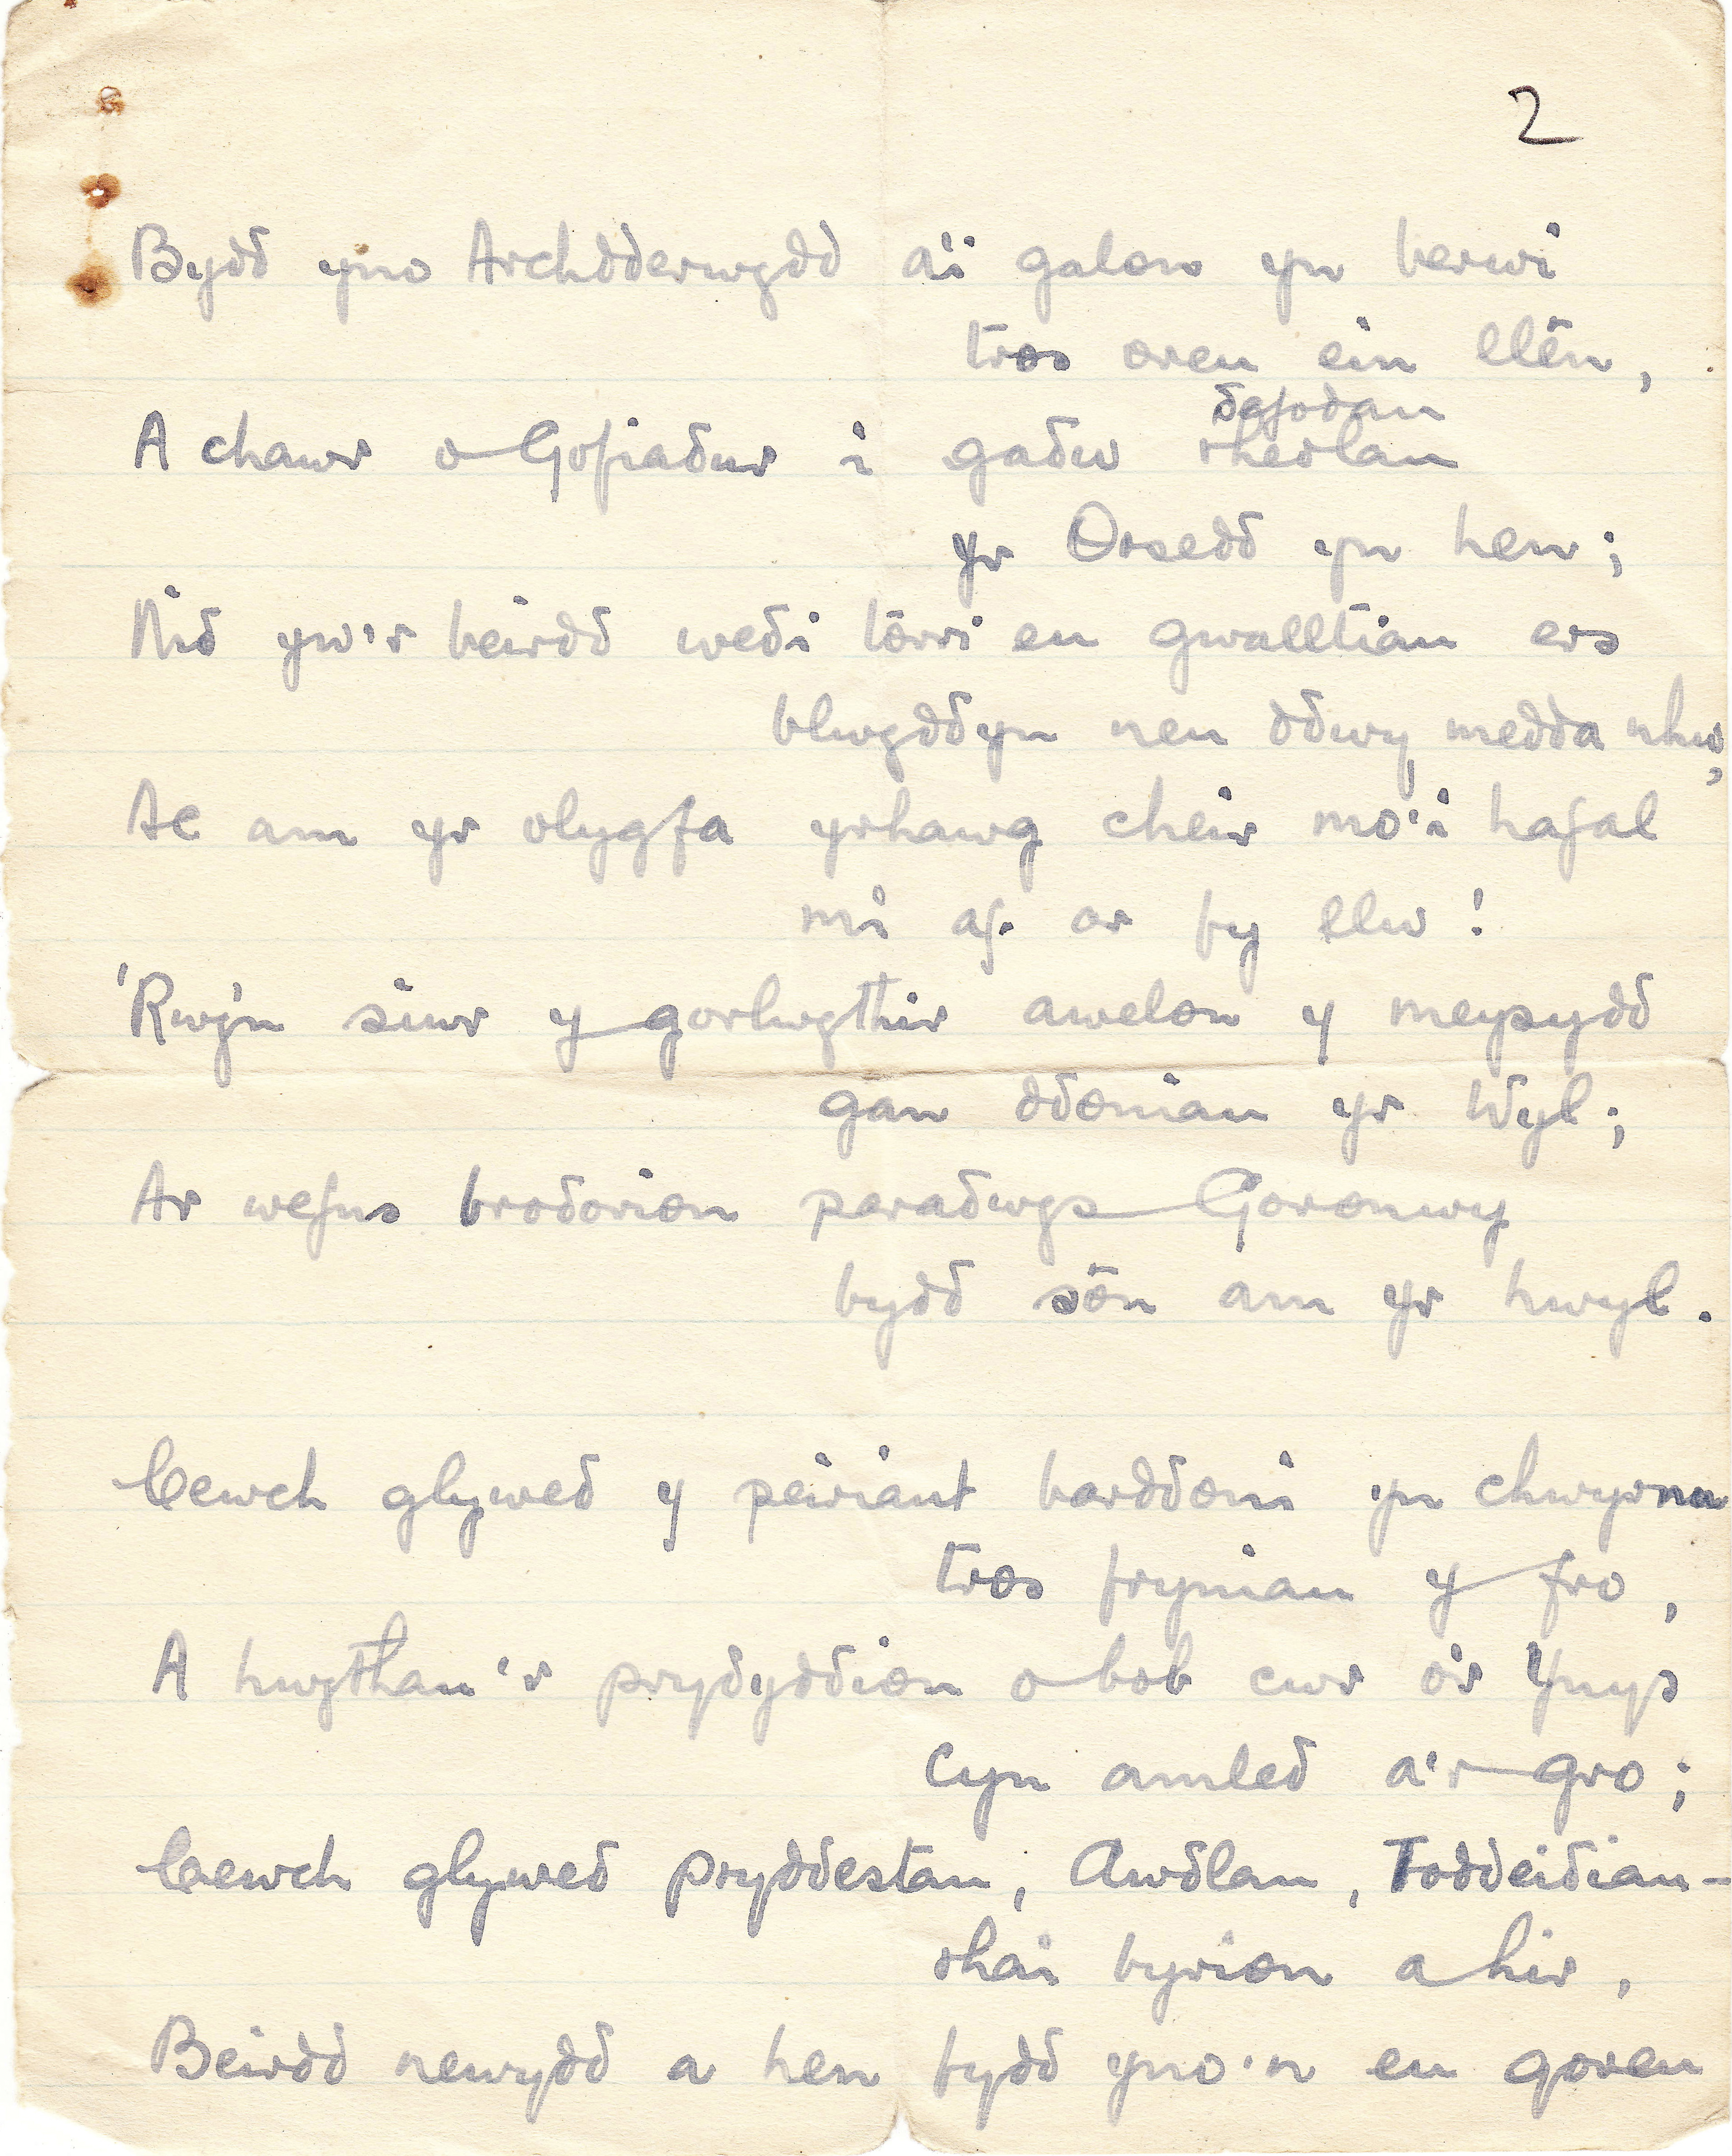 2
Bydd yno Archdderwydd a'i galon yn berwi
tros oreu ein llên,
ddefodau
A chawr o Gofiadur i gadw rheolau
yr Orsedd yn hen;
Nid yw'r beirdd wedi torri eu gwalltiau ers
blwyddyn neu ddwy, medda nhw,
Ac am yr olygfa yrhawg cheir mo'i hafal
mi af ar fy llw!
'Rwy'n siwr y gorlwythir awelon y meysydd
gan ddoniau yr Wyl;
Ar wefus brodorion paradwys Goronwy
bydd sôn am yr hwyl.
Cewch glywed y peiriant barddoni yn chwyrnu
tros fryniau y fro,
A hwythau'r prydyddion o bob cwr o'r Ynys
Cyn amled a'r gro;
Cewch glywed pryddestau, Awdlau, Toddeidiau-
rhai byrion a hir,
Beirdd newydd a hen fydd yno'n eu goreu